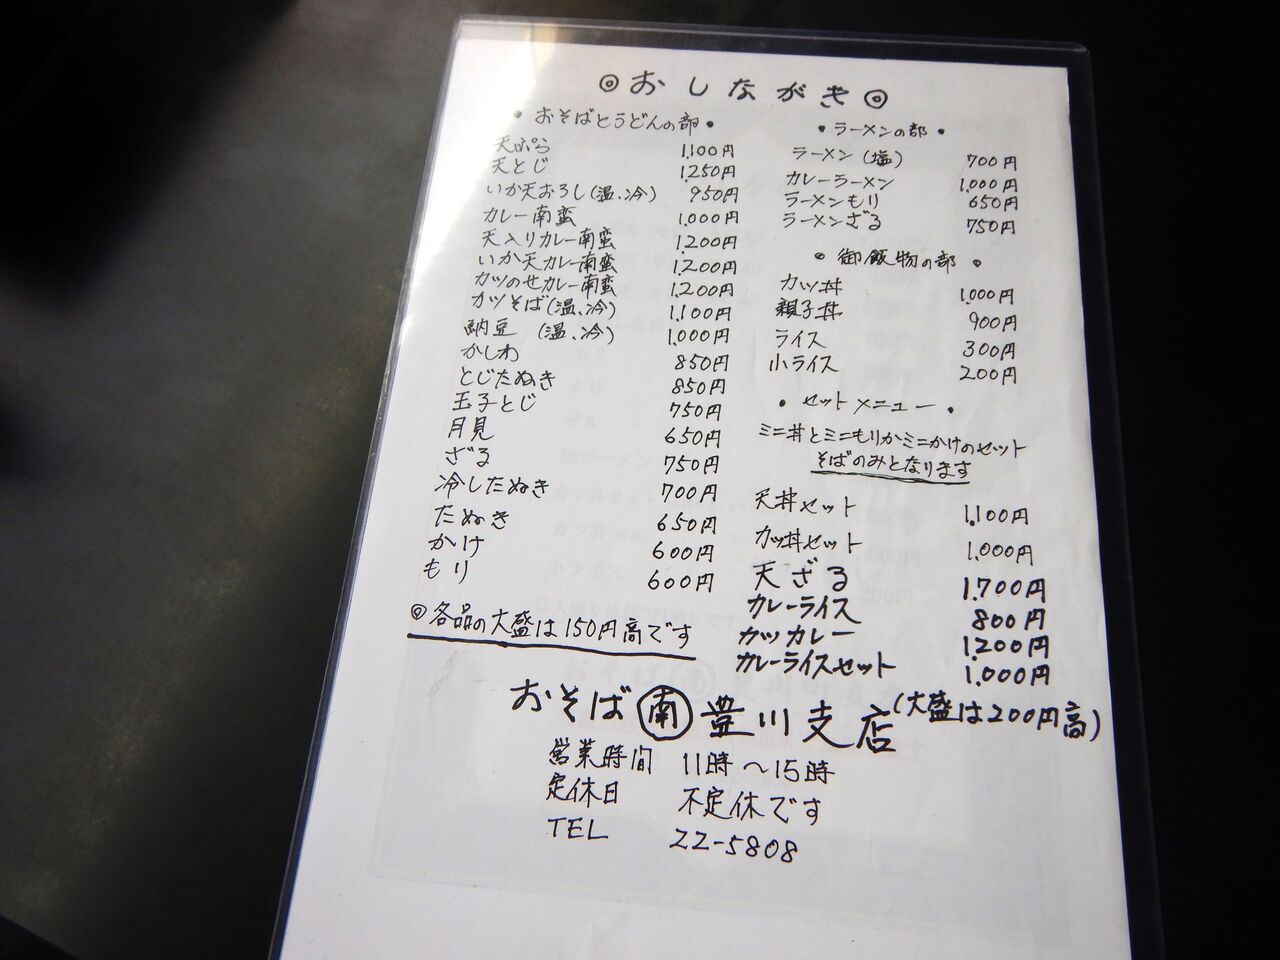 ◎おしながき◎
・おそばとうどんの部・
天ぷら 1,100円
天とじ 1,250円
いか天おろし(温、冷) 950円
カレー南蛮 1,000円
天入りカレー南蛮 1,200円
いか天カレー南蛮 1,200円
カツのせカレー南蛮 1,200円
カツそば(温、冷) 1,100円
納豆 (温、冷) 1,000円
かしわ 850円
とじたぬき 850円
玉子とじ 750円
月見 650円
ざる 750円
冷したぬき 700円
たぬき 650円
かけ 600円
もり 600円
◎各品の大盛は150円高です
・ラーメンの部・
ラーメン(塩) 700円
カレーラーメン 1,000円
ラーメンもり 650円
ラーメンざる 750円
・御飯物の部・
カツ丼 1,000円
親子丼 900円
ライス 300円
小ライス 200円
・セットメニュー・
ミニ丼とミニもりかミニかけのセット
そばのみとなります
天丼セット 1,100円
カツ丼セット 1,000円
天ざる 1,700円
カレーライス 800円
カツカレー 1,200円
カレーライスセット 1,000円
(大盛は200円高)
おそば 南 豊川支店
営業時間 11時〜15時
定休日 不定休です
TEL 22-5808